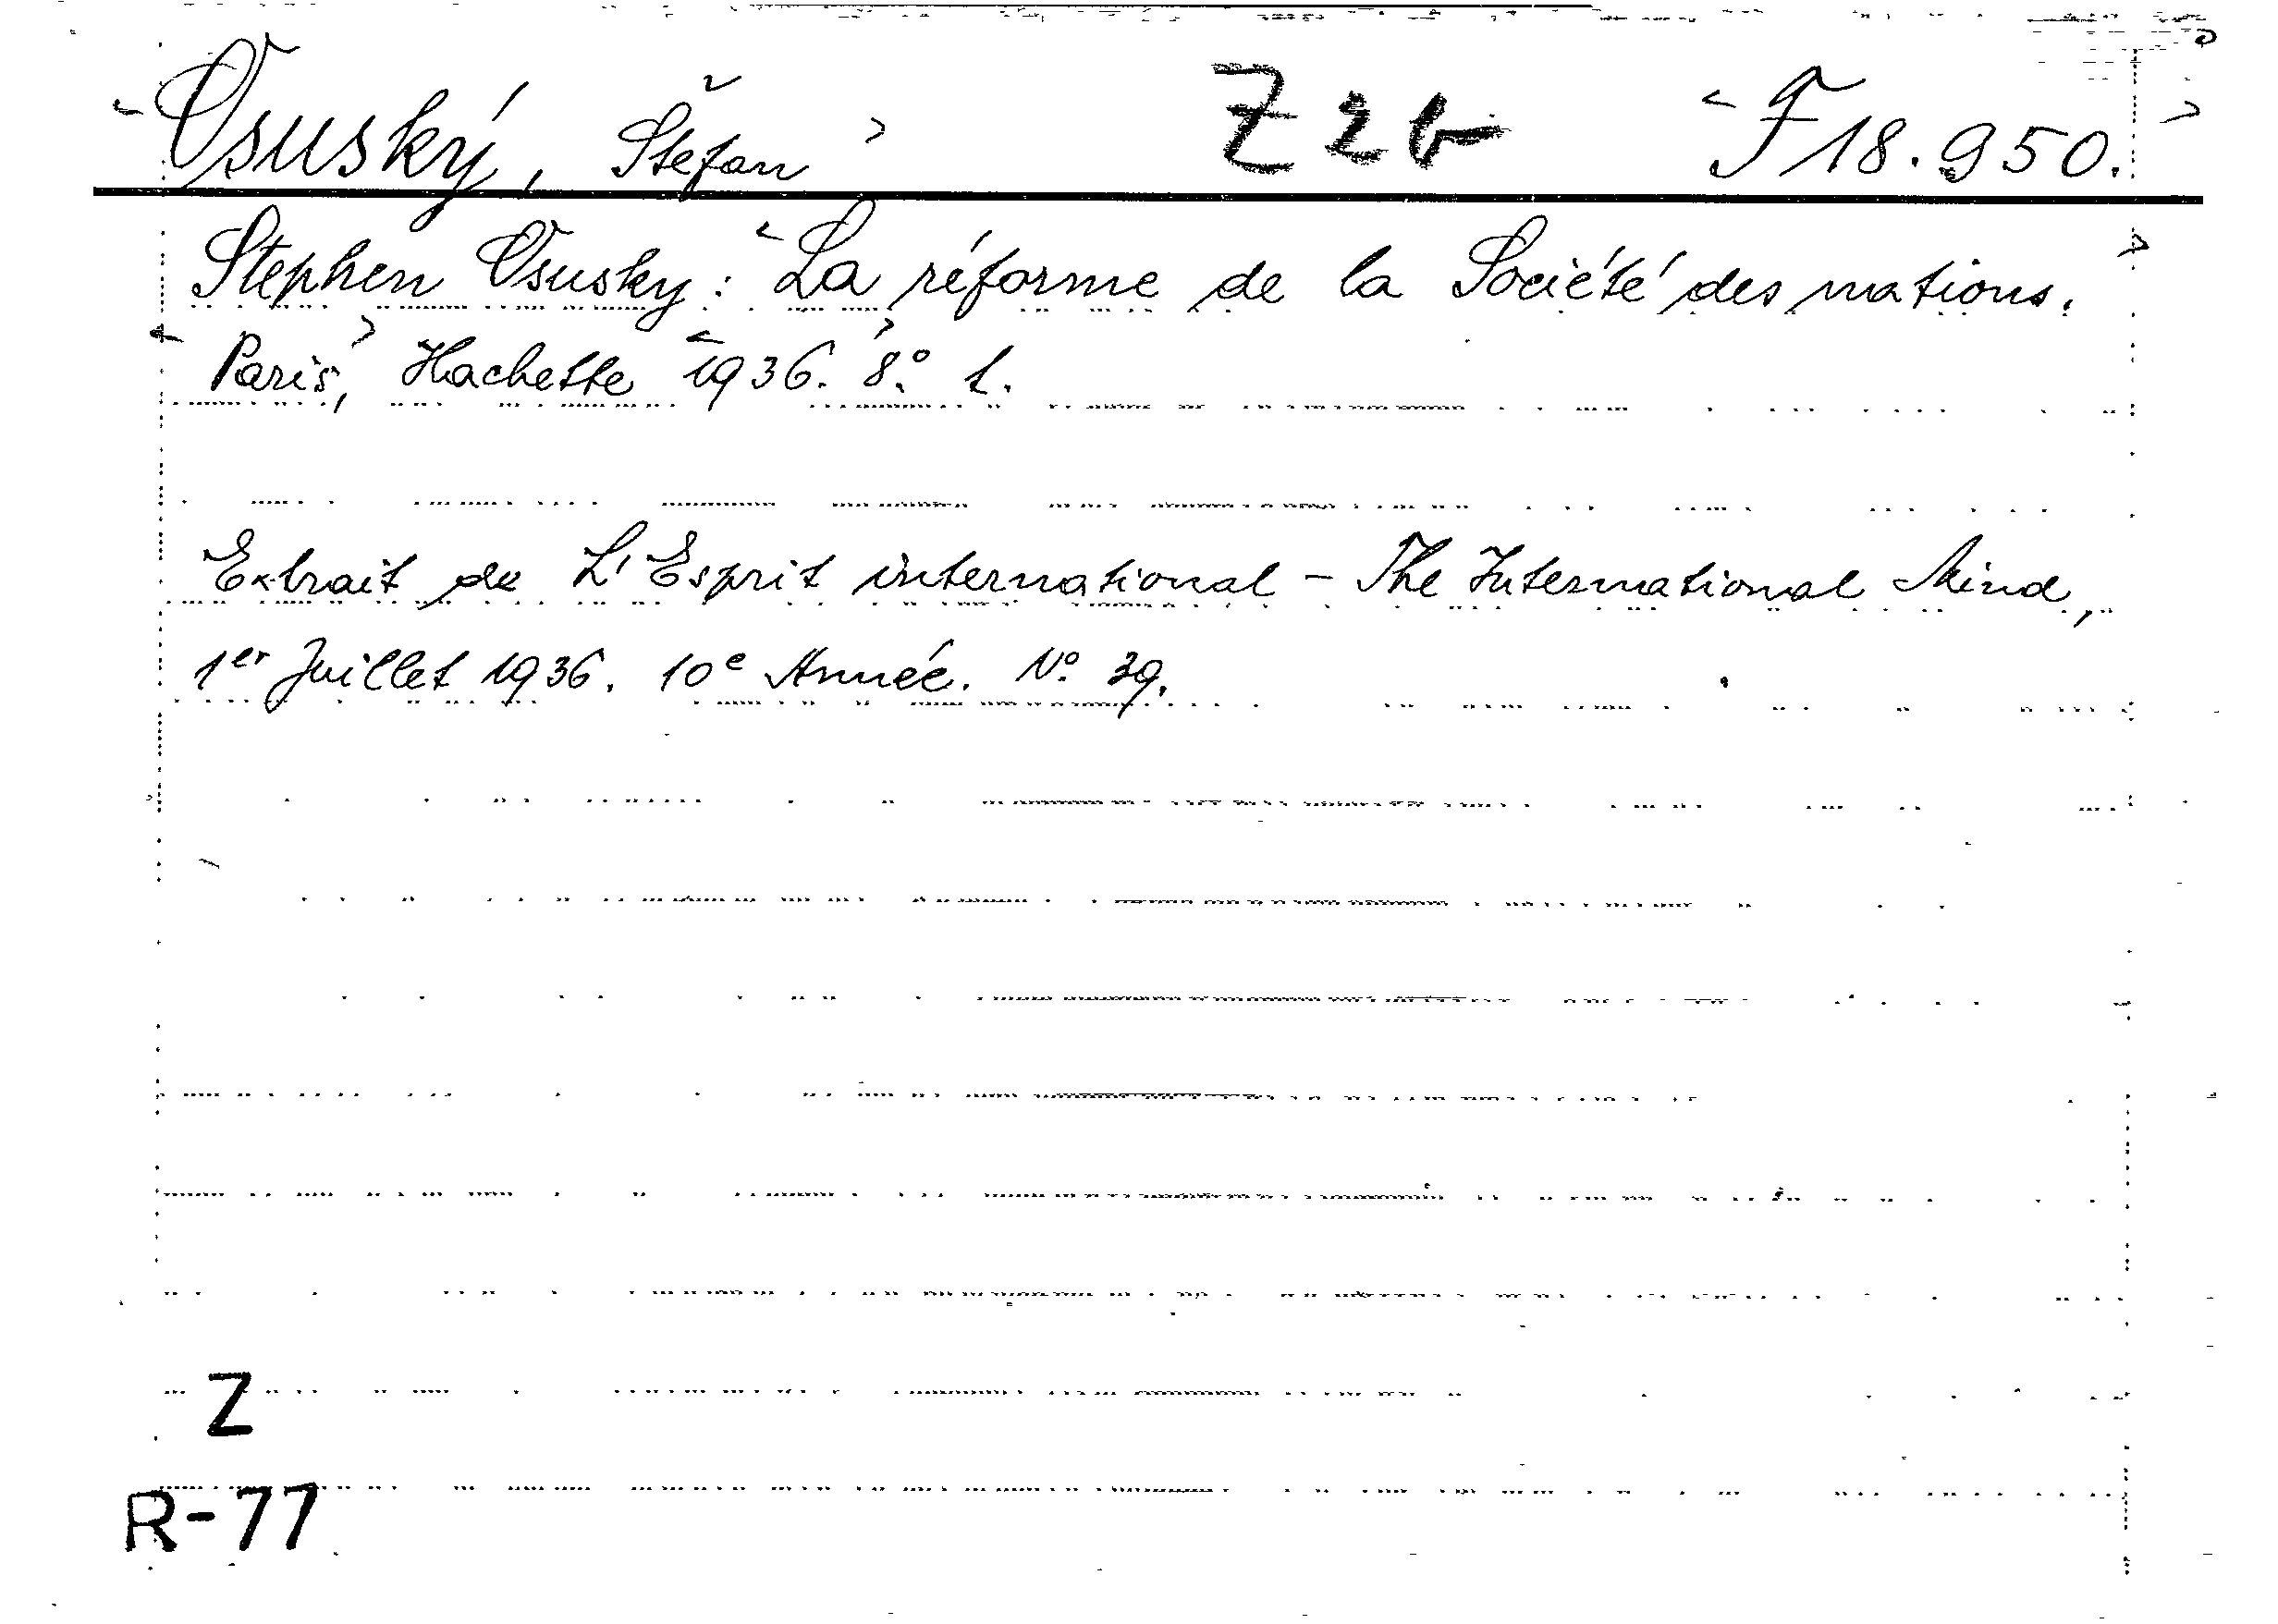 Osuský, Štefan Z 2b F 18.950.
Stephen Osusky: La réforme de la Société des nations.
Paris, Hachette 1936. 8.° 1.
Extrait de L'Esprit international - The International Mind,
1er Juillet 1936. 10e Année. N° 39.
Z
R-77